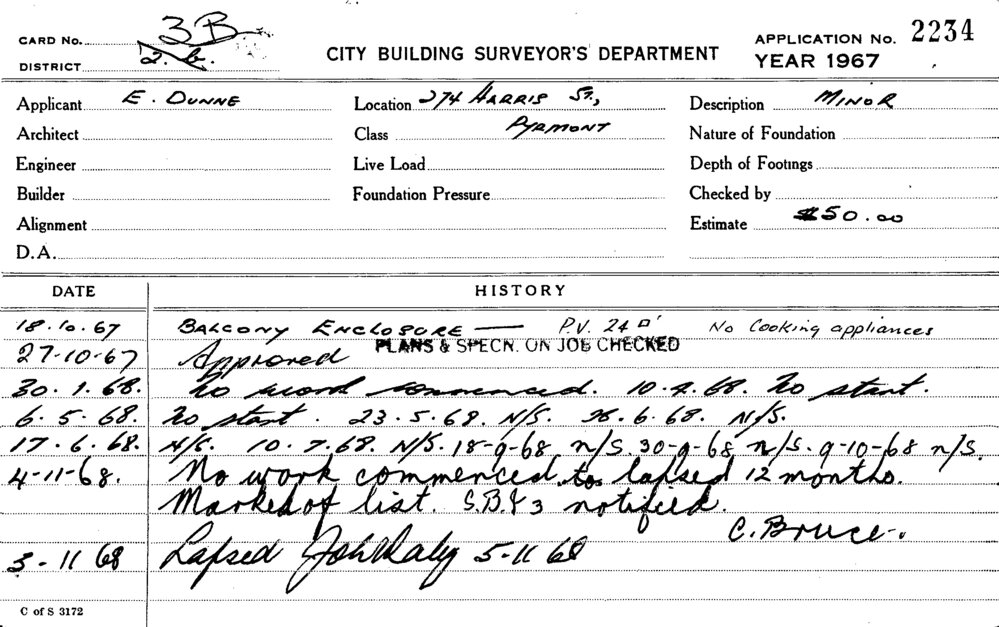 CARD No. 3B
DISTRICT 2.6.
CITY BUILDING SURVEYOR'S DEPARTMENT
APPLICATION No. 2234
YEAR 1967
Applicant E. DUNNE
Location 274 HARRIS ST.,
Description MINOR
Architect
Class PYRMONT
Nature of Foundation
Engineer
Live Load
Depth of Footings
Builder
Foundation Pressure
Checked by
Alignment
Estimate $50.00
D.A.
DATE HISTORY
18.10.67 BALCONY ENCLOSURE — P.V. 24 □' No Cooking appliances
27-10-67 Approved PLANS & SPECN. ON JOB CHECKED
30.1.68. No work commenced. 10.4.68. No start.
6.5.68. No start. 23.5.68. N/S. 6.68. N/S.
17.6.68. N/S. 10.7.68. N/S. 18-9-68 n/S. 30-9-68 n/S. 9-10-68 n/S.
4-11-68. No work commenced. to lapsed 12 months.
Marked of list. S.B. & 3 notified.
C. Bruce.
3-11 68 Lapsed John Daly 5-11 68
C of S 3172